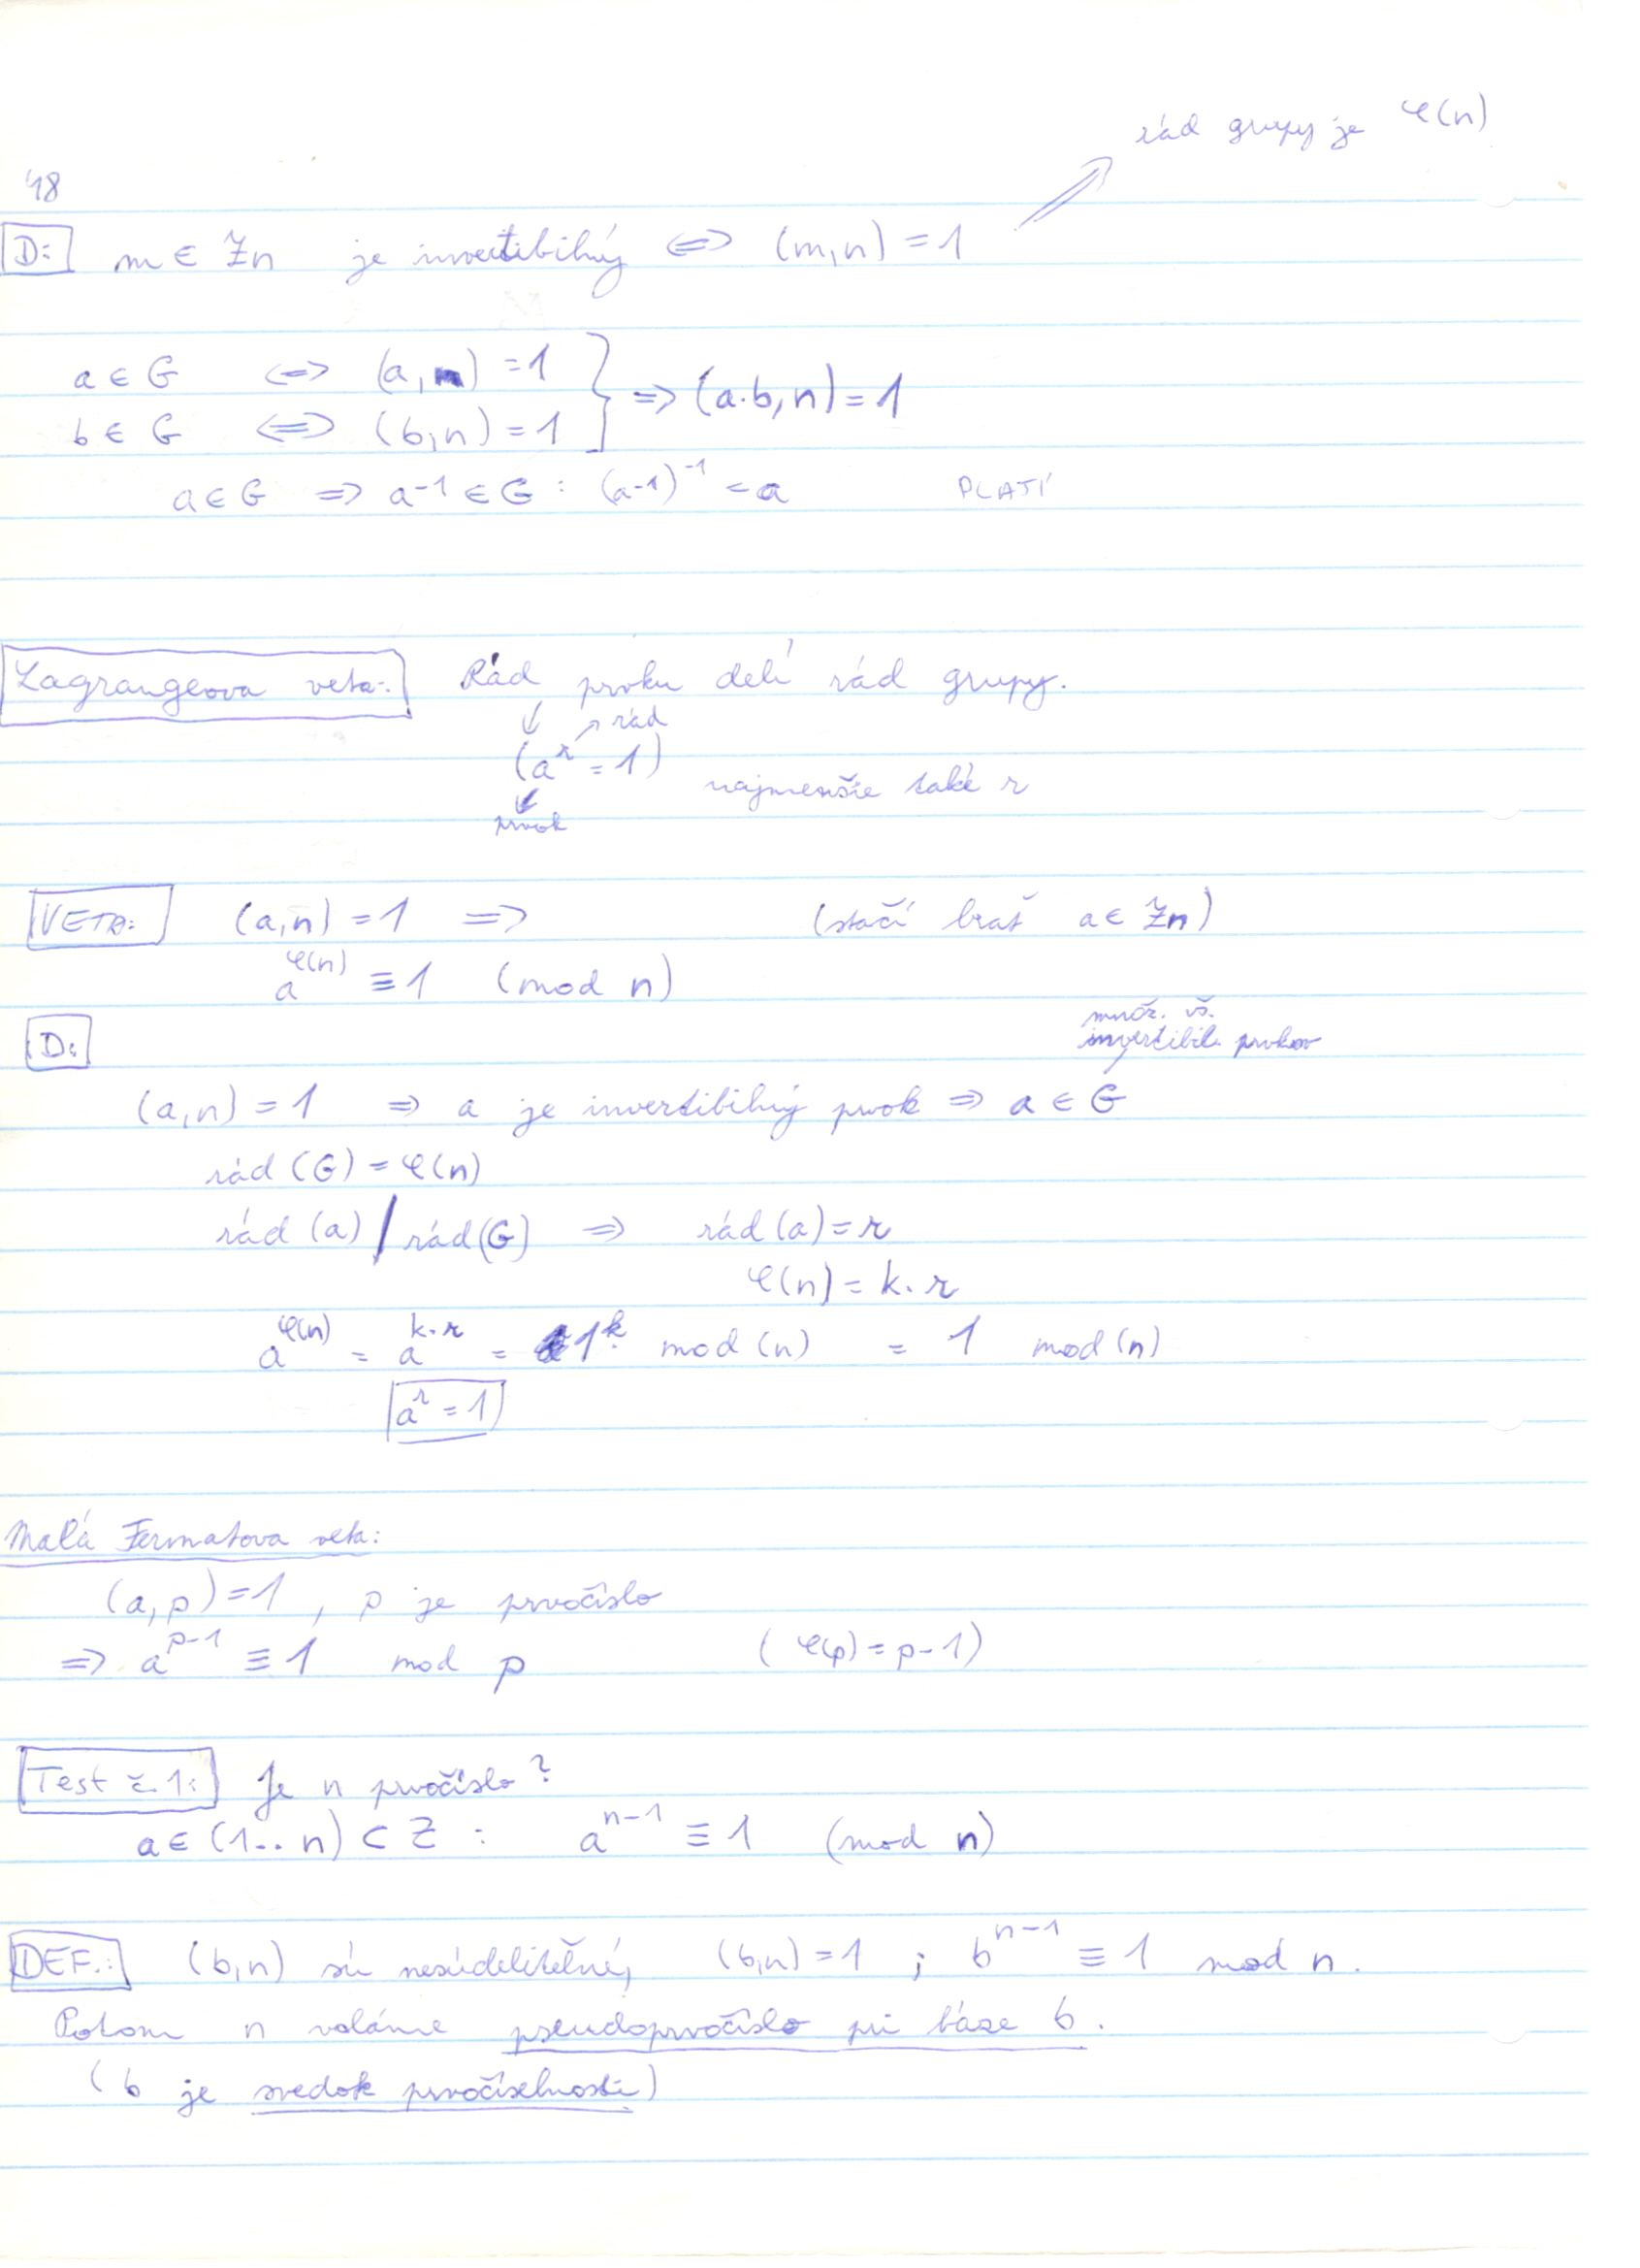 rád grupy je φ(n)
48
D: m ∈ Zn je invertibilný <=> (m,n) = 1
a ∈ G <=> (a,n) = 1
b ∈ G <=> (b,n) = 1 } => (a.b,n) = 1
a ∈ G => a-1 ∈ G : (a-1)^-1 = a PLATÍ
Lagrangeova veta: Rád prvku delí rád grupy.
↓ ↗ rád
(a^r = 1) najmenšie také r
↓
prvok
VETA: (a,n) = 1 => (stačí brať a ∈ Zn)
a^φ(n) ≡ 1 (mod n)
D:
množ. vš.
invertibil. prvkov
(a,n) = 1 => a je invertibilný prvok => a ∈ G
rád (G) = φ(n)
rád (a) / rád (G) => rád (a) = r
φ(n) = k.r
a^φ(n) = a^k.r = 1^k mod (n) = 1 mod (n)
a^r = 1
Malá Fermatova veta:
(a,p) = 1, p je prvočíslo
=> a^p-1 ≡ 1 mod p (φ(p) = p-1)
Test č.1: Je n prvočíslo?
a ∈ (1..n) ⊂ Z : a^n-1 ≡ 1 (mod n)
DEF.: (b,n) sú nesúdeliteľné, (b,n) = 1 ; b^n-1 ≡ 1 mod n.
Potom n voláme pseudoprvočíslo pri báze b.
(b je svedok prvočíselnosti)